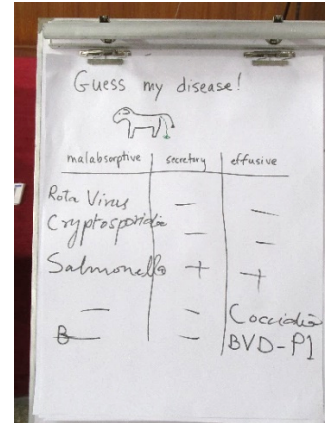 Guess my disease!
malabsorptive secretory effusive
Rota Virus — —
Cryptosporidia — —
Salmonella + +
— — Coccidia
B — BVD-P1